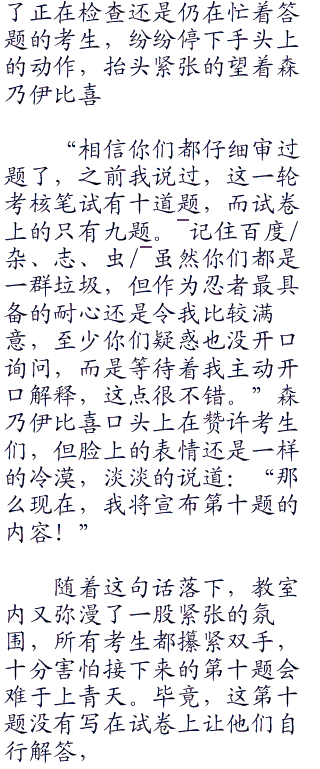 了正在检查还是仍在忙着答
题的考生，纷纷停下手头上
的动作，抬头紧张的望着森
乃伊比喜
“相信你们都仔细审过
题了，之前我说过，这一轮
考核笔试有十道题，而试卷
上的只有九题。¯记住百度/
杂、志、虫/¯虽然你们都是
一群垃圾，但作为忍者最具
备的耐心还是令我比较满
意，至少你们疑惑也没开口
询问，而是等待着我主动开
口解释，这点很不错。”森
乃伊比喜口头上在赞许考生
们，但脸上的表情还是一样
的冷漠，淡淡的说道：“那
么现在，我将宣布第十题的
内容！”
随着这句话落下，教室
内又弥漫了一股紧张的氛
围，所有考生都攥紧双手，
十分害怕接下来的第十题会
难于上青天。毕竟，这第十
题没有写在试卷上让他们自
行解答，